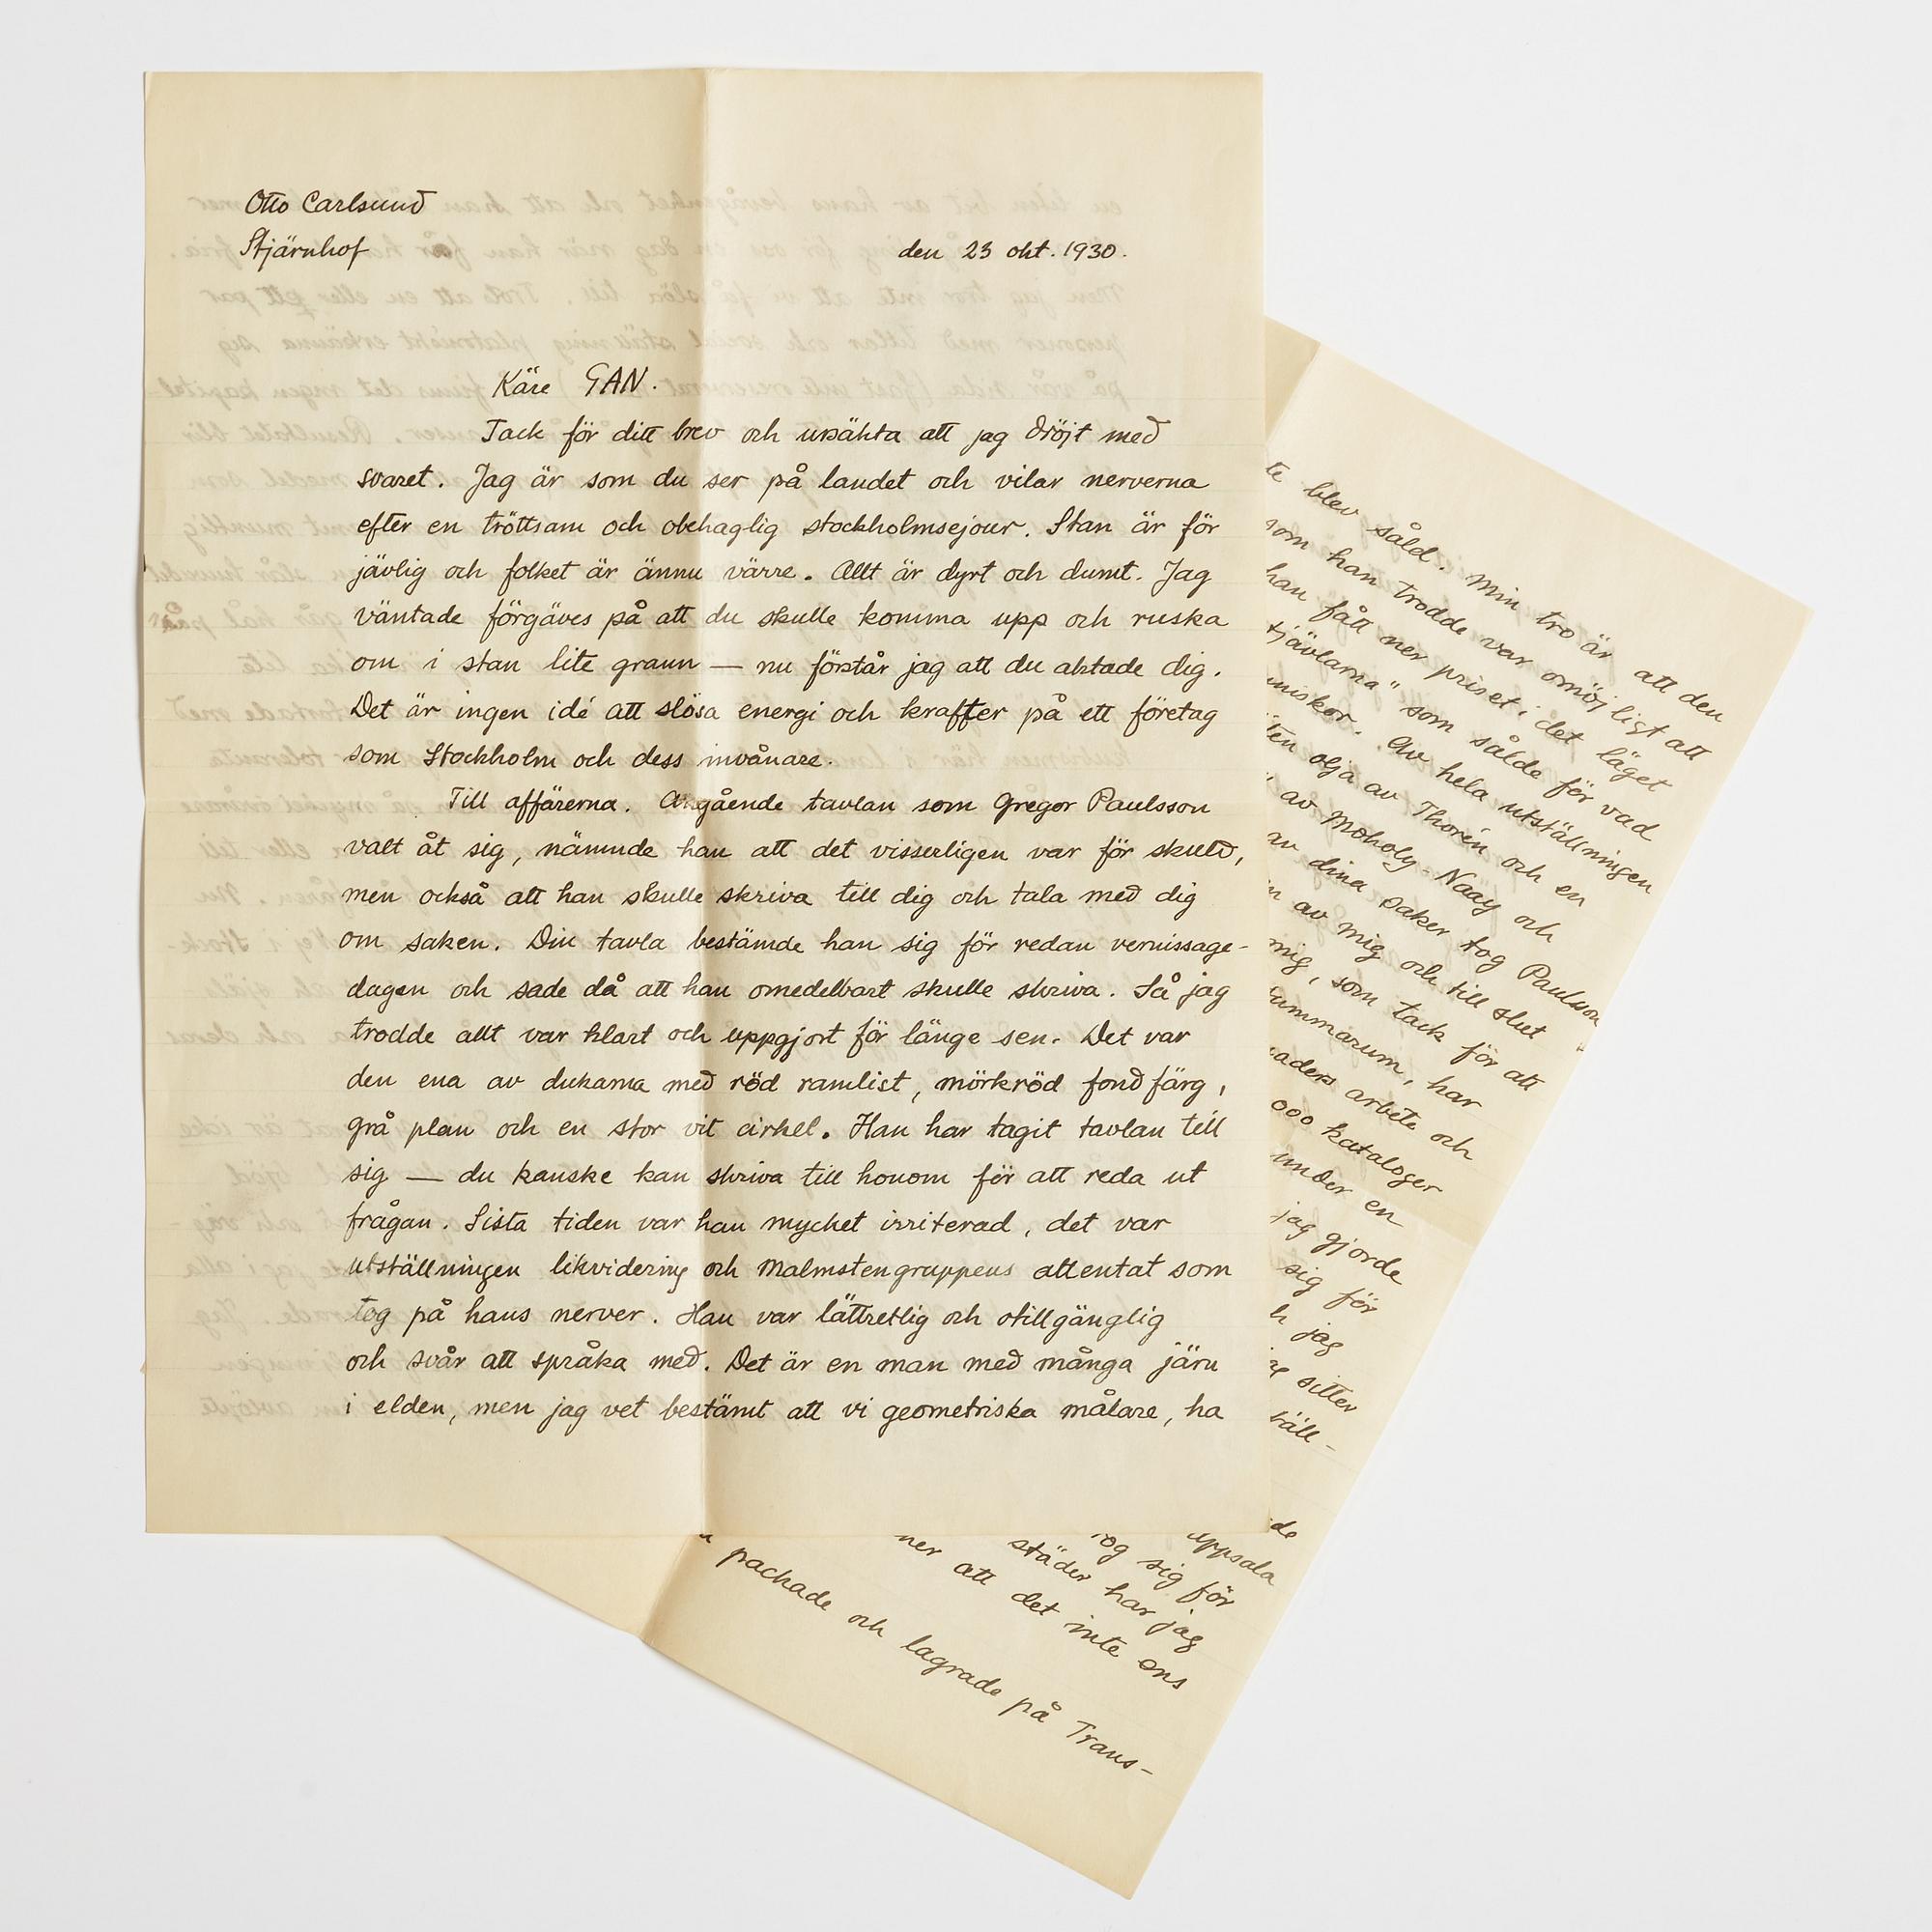 Otto Carlsund
Stjärnhof
den 23 okt. 1930.
Käre GAN.
Tack för ditt brev och ursäkta att jag dröjt med
svaret. Jag är som du ser på landet och vilar nerverna
efter en tröttsam och obehaglig stockholmsejour. Stan är för
jävlig och folket är ännu värre. Allt är dyrt och dumt. Jag
väntade förgäves på att du skulle komma upp och ruska
om i stan lite grann — nu förstår jag att du aktade dig.
Det är ingen idé att slösa energi och krafter på ett företag
som Stockholm och dess invånare.
Till affärerna. Angående tavlan som Gregor Paulsson
valt åt sig, nämnde han att det visserligen var för skuld,
men också att han skulle skriva till dig och tala med dig
om saken. Din tavla bestämde han sig för redan vernissage-
dagen och sade då att han omedelbart skulle skriva. Så jag
trodde allt var klart och uppgjort för länge sen. Det var
den ena av dukarna med röd ramlist, mörkröd fondfärg,
grå plan och en stor vit cirkel. Han har tagit tavlan till
sig — du kanske kan skriva till honom för att reda ut
frågan. Sista tiden var han mycket irriterad, det var
utställningen likvidering och Malmstengruppens attentat som
tog på hans nerver. Han var lättretlig och otillgänglig
och svår att språka med. Det är en man med många järn
i elden, men jag vet bestämt att vi geometriska målare, ha
te blev såld. Min tro är att den
som han trodde var omöjligt att
han fått ner priset i det läget
tjävlarna" som sålde för vad
niskor. Av hela utställningen
ten olja av Thorén och en
av Moholy-Naay och
av dina saker tog Paulsson
n av mig och till slut
mig, som tack för att
summarum, har
naders arbete och
000 kataloger
under en
jag gjorde
sig för
h jag
re sitter
täll-
de
uppsala
rog sig för
städer har jag
ner att det inte ens
packade och lagrade på Trans-